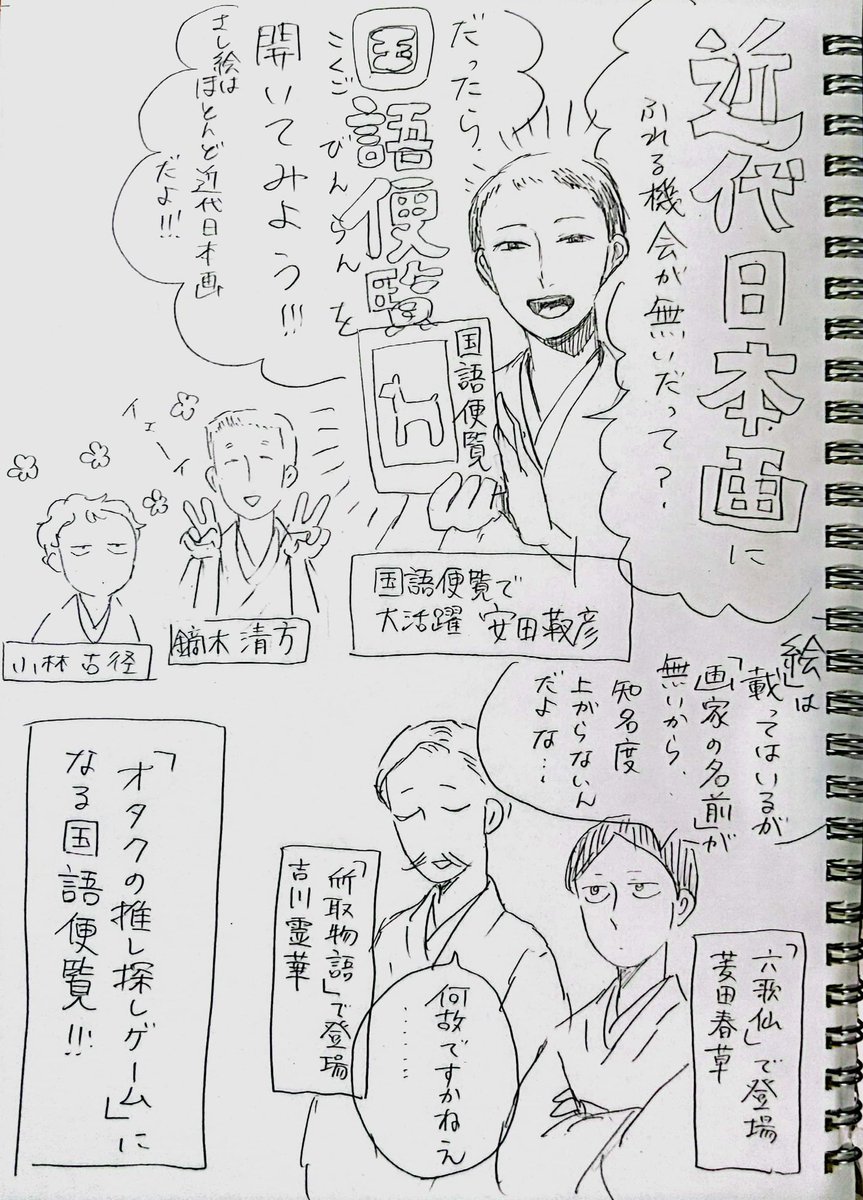 近代日本画に
ふれる機会が無いだって？
だったら、
国語便覧を
こくご びんらん
開いてみよう!!!
さし絵は
ほとんど近代日本画
だよ!!!
国語便覧
国語便覧で
大活躍 安田靫彦
イェーイ
鏑木清方
小林古径
「絵」は
載ってはいるが
「画家の名前」が
無いから、
知名度
上がらないん
だよな…
「六歌仙」で登場
菱田春草
何故ですかねえ
……
取物語」で登場
吉川霊華
「オタクの推し探しゲーム」に
なる国語便覧!!!